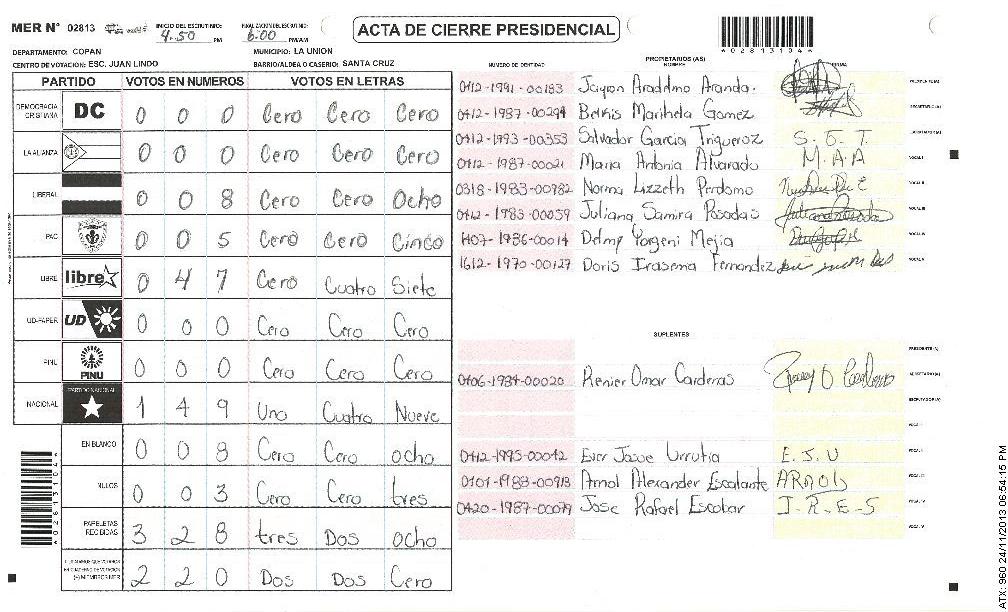 MER Nº 02813 INICIO DEL ESCRUTINIO: 4:50 PM FINALIZACION DEL ESCRUTINIO: 6:00 PM/AM ACTA DE CIERRE PRESIDENCIAL *02813104*
DEPARTAMENTO: COPAN MUNICIPIO: LA UNION
CENTRO DE VOTACION: ESC. JUAN LINDO BARRIO/ALDEA O CASERIO: SANTA CRUZ
PARTIDO VOTOS EN NUMEROS VOTOS EN LETRAS
DEMOCRACIA CRISTIANA DC 0 0 0 Cero Cero Cero
LA ALIANZA 0 0 0 Cero Cero Cero
LIBERAL 0 0 8 Cero Cero Ocho
PAC 0 0 5 Cero Cero Cinco
LIBRE libre 0 4 7 Cero Cuatro Siete
UD-FAPER UD 0 0 0 Cero Cero Cero
PINU PINU 0 0 0 Cero Cero Cero
NACIONAL PARTIDO NACIONAL 1 4 9 Uno Cuatro Nueve
EN BLANCO 0 0 8 Cero Cero ocho
NULOS 0 0 3 Cero Cero tres
PAPELETAS RECIBIDAS 3 2 8 tres Dos ocho
CIUDADANOS QUE VOTARON EN CUADERNO DE VOTACION (+) MIEMBROS MER 2 2 0 Dos Dos Cero
PROPIETARIOS (AS)
NUMERO DE IDENTIDAD NOMBRE FIRMA
0412-1991-00183 Jayron Araddmo Aranda. PRESIDENTE (A)
0412-1987-00294 Belkis Marihela Gomez SECRETARIO (A)
0412-1993-00353 Salvador Garcia Trigueroz S. G. T. ESCRUTADOR (A)
0412-1987-00021 Maria Antonia Alvarado M. A. A VOCAL I
0318-1983-00782 Norma Lizzeth Perdomo VOCAL II
0412-1983-00059 Juliana Samira Posadas VOCAL III
1407-1986-00014 Delmy Yorgeni Mejia VOCAL IV
1612-1970-00127 Doris Irasema Fernandez VOCAL V
SUPLENTES
PRESIDENTE (A)
0406-1984-00020 Renier Omar Carderas SECRETARIO (A)
ESCRUTADOR (A)
VOCAL I
0412-1995-00042 Ever Josue Urrutia E. J. U VOCAL II
0101-1988-00913 Arnol Alexander Escalante ARNOL VOCAL III
0420-1987-00079 Jose Rafael Escobar J-R-E-S VOCAL IV
VOCAL V
ATX: 960 24/11/2013 06:54:15 PM